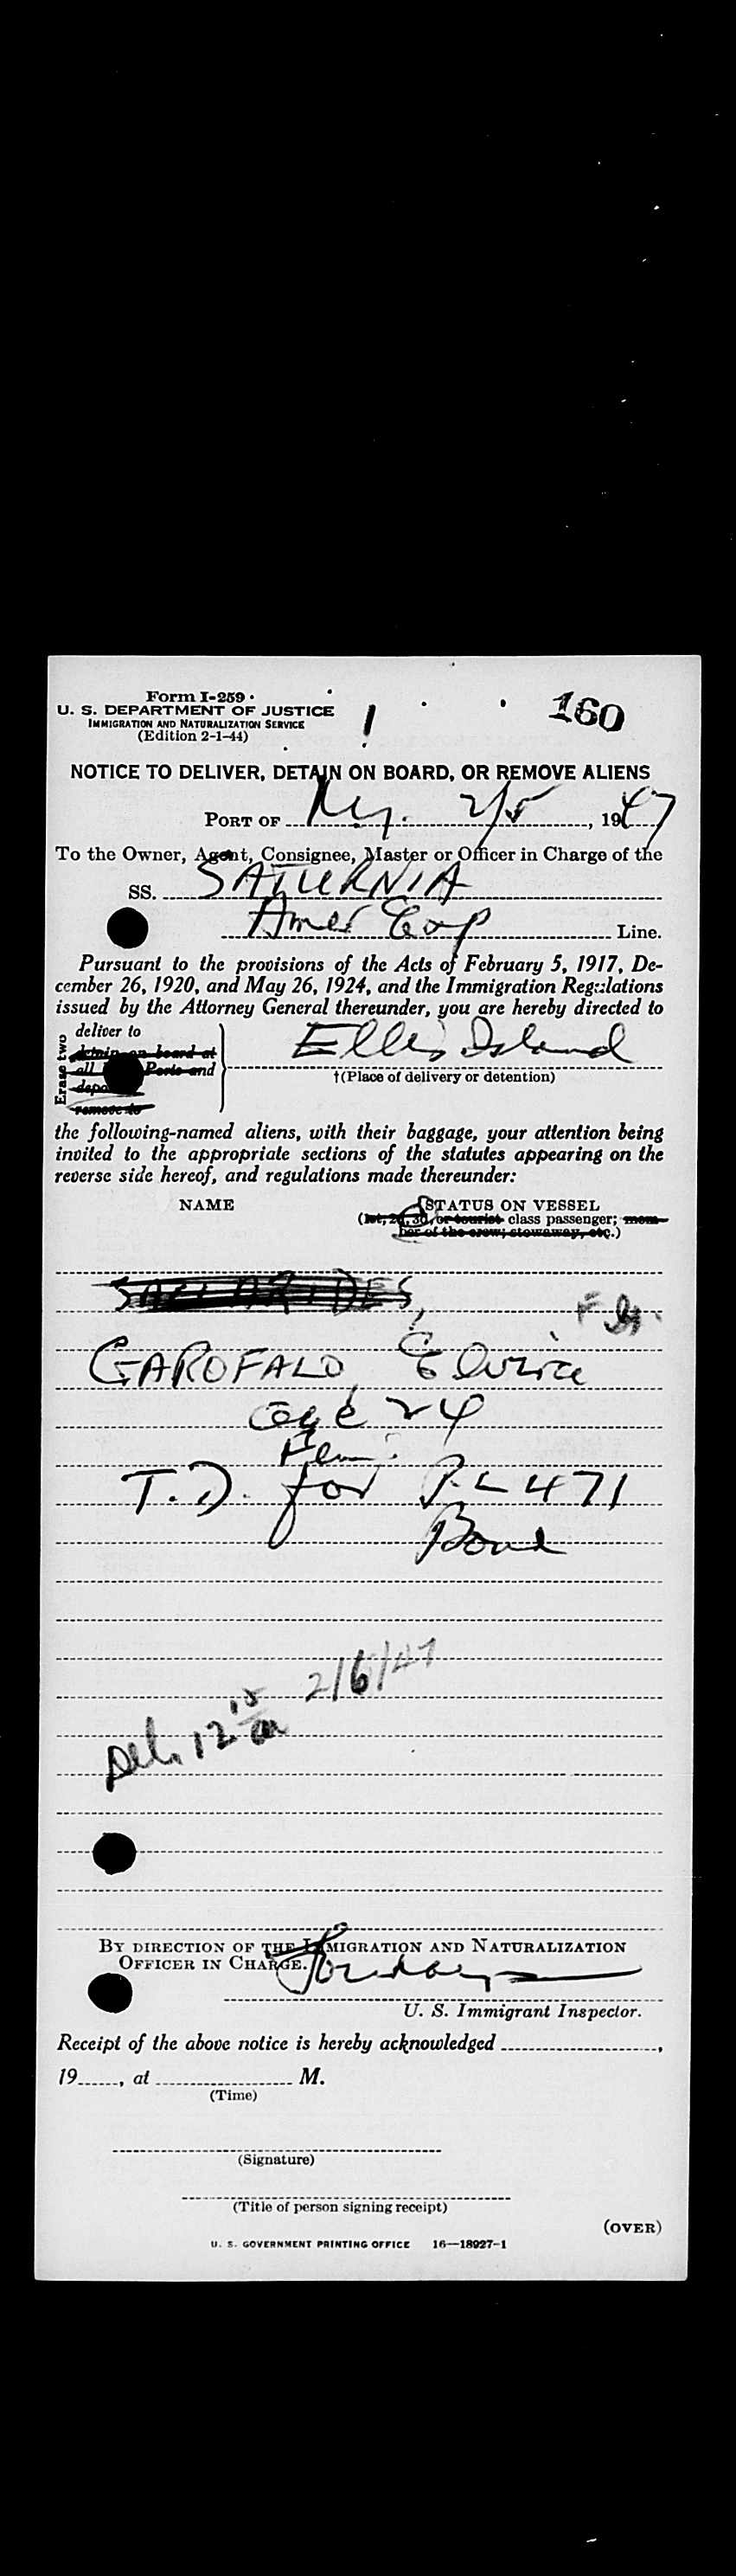 Form I-259
U. S. DEPARTMENT OF JUSTICE
IMMIGRATION AND NATURALIZATION SERVICE
(Edition 2-1-44)
160
NOTICE TO DELIVER, DETAIN ON BOARD, OR REMOVE ALIENS
PORT OF N.Y. 2/5, 1947
To the Owner, Agent, Consignee, Master or Officer in Charge of the
SS. SATURNIA
Amer Exp Line.
Pursuant to the provisions of the Acts of February 5, 1917, De-
cember 26, 1920, and May 26, 1924, and the Immigration Regulations
issued by the Attorney General thereunder, you are hereby directed to
Erase two
deliver to
detain on board at
all Ports and
remove to
Ellis Island
†(Place of delivery or detention)
the following-named aliens, with their baggage, your attention being
invited to the appropriate sections of the statutes appearing on the
reverse side hereof, and regulations made thereunder:
NAME
STATUS ON VESSEL
(1st, 2d, 3d, or tourist class passenger; mem-
ber of the crew; stowaway, etc.)
GAROFALO, Elvira
age 24
Fem
T.D. for P.L 471
Bond
Del. 12 15 am 2/6/47
BY DIRECTION OF THE IMMIGRATION AND NATURALIZATION
OFFICER IN CHARGE.
U. S. Immigrant Inspector.
Receipt of the above notice is hereby acknowledged ,
19 , at M.
(Time)
(Signature)
(Title of person signing receipt)
(OVER)
U. S. GOVERNMENT PRINTING OFFICE 16—18927-1